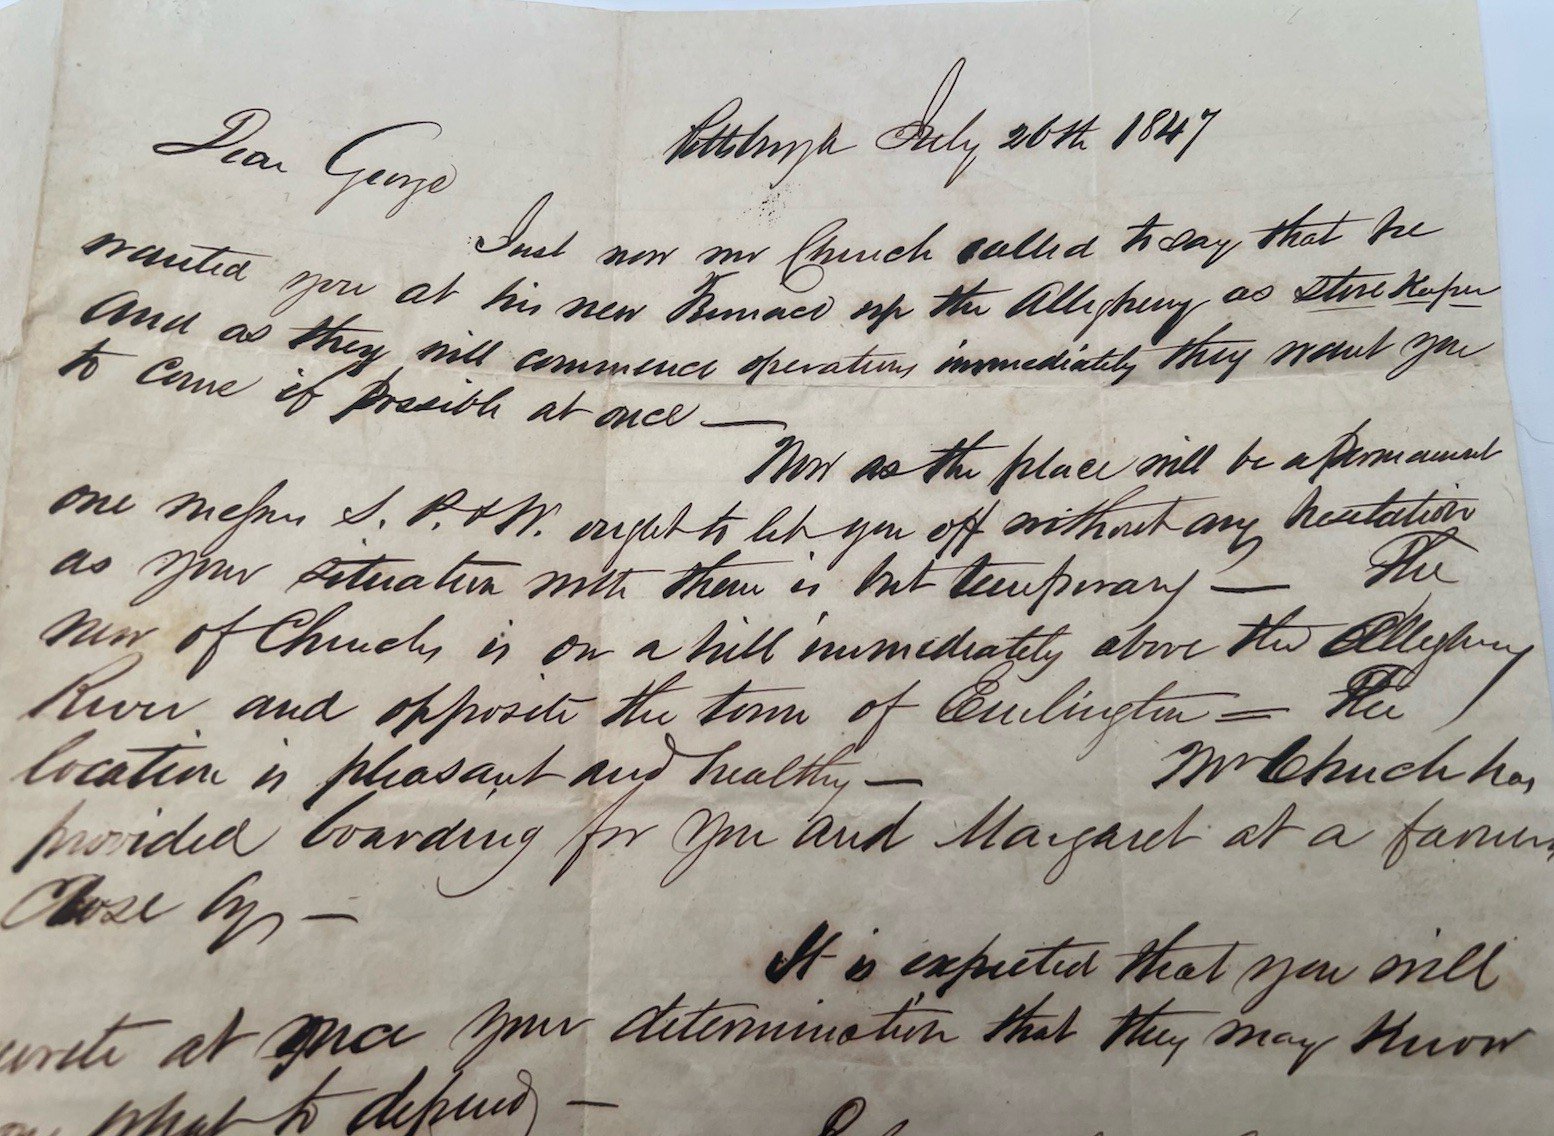 Pittsburgh July 26th 1847
Dear George
Just now mr Church called to say that he
wanted you at his new Furnace up the Allegheny as store Keeper
and as they will commence operations immediately they want you
to come if possible at once —
Now as the place will be a permanent
one messrs S. P. & W. ought to let you off without any hesitation
as your situation with them is but temporary — The
new of Churchs is on a hill immediately above the Allegheny
River and opposite the town of Emlington = The
location is pleasant and healthy — Mr Church has
provided boarding for you and Margaret at a farmers
close by, —
It is expected that you will
write at once your determination that they may know
on what to depend, —